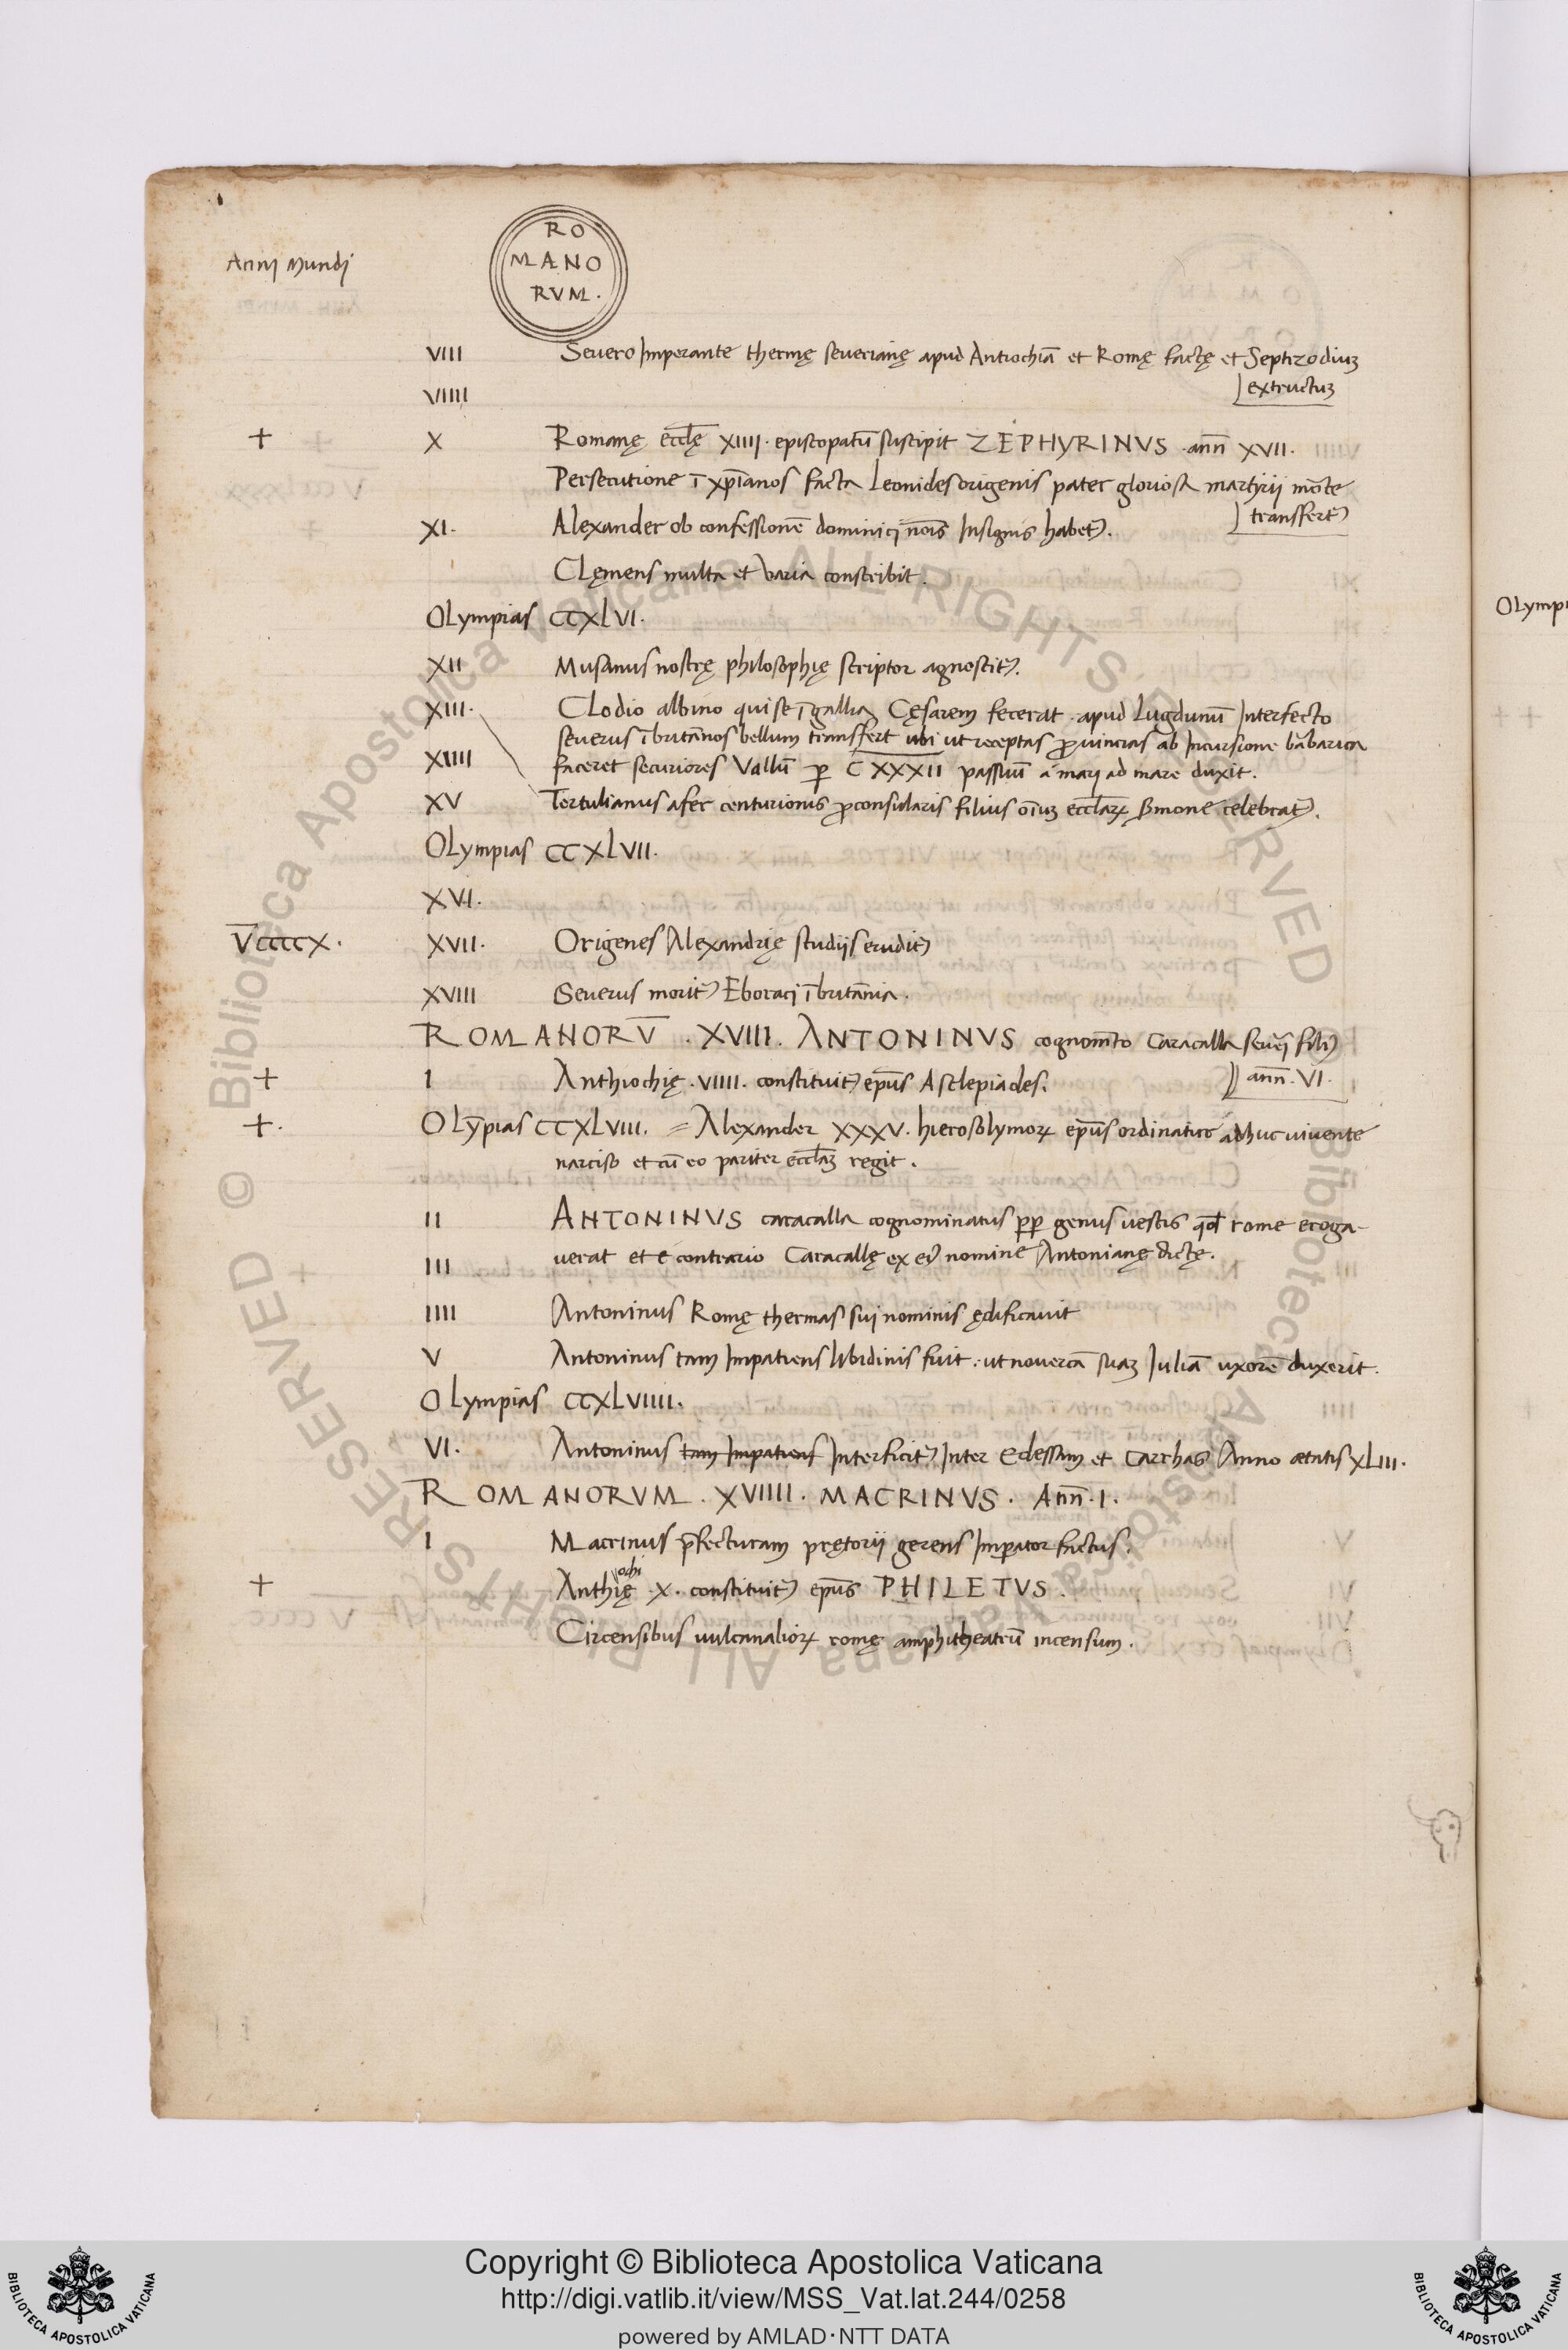 Anni Mundi
RO
MANO
RVM.
VIII Seuero Imperante thermę seuerianę apud Antiochiā et Romę factę et Septizodiuʒ
extructuʒ
VIIII
+ X Romanę eccl̄ę XIIII. episcopatū suscipit ZEPHYRINVS .ann̄ XVII.
Persecutione ī xp̄ianos facta Leonides origenis pater gloriosa martyrii mōte
transfert᾽
XI. Alexander ob confessionē dominici nōis Insignis habet᾽.
Clęmens multa et Varia conscribit.
OLympias CCXLVI.
XII Musanus nostrę philosophię scriptor agnoscit᾽.
XIII. CLodio albino qui se ī gallia Cęsarem fecerat . apud Lugdunū Interfecto
seuerus ī britānos bellum transfert ubi ut receptas ꝓuincias ab Incursione bārbarica
XIIII faceret securiores Vallū ꝑ CXXXII passuū a mari ad mare duxit.
XV Tertulianus afer centurionis ꝓconsularis filius oīuʒ eccl̄arꝝ ẜmone celebrat᾽.
OLympias CCXLVII.
XVI.
V̄CCCCX. XVII. Origenes Alexandrię studiis erudit᾽
XVIII Seuerus morit᾽ Eboraci ī britānia.
ROMANORV̄ . XVIII. ANTONINVS cognom̄to Caracalla seueri fili᾽
+ I Anthiochię .VIIII. constituit᾽ ep̄us Asclepiades. ann̄. VI.
+. OLȳpias CCXLVIII. = Alexander XXXV. hierosolymorꝝ ep̄us ordinatur adhuc uiuente
narciso et cū eo pariter eccl̄aʒ regit.
II ANTONINVS caracalla cognominatus ꝓp genus uestis qđ rome eroga-
III uerat et e contrario Caracallę ex ei᾽ nomine Antonianę dictę.
IIII Antoninus Romę thermas sui nominis ędificauit
V Antoninus tam Impatiens libidinis fuit . ut nouercā suaʒ Juliā uxorē duxerit.
OLympias CCXLVIIII.
VI. Antoninus tam Impatiens Interficit᾽ Inter Edessam et Carrhas Anno ætatis XLIII.
ROMANORVM . XVIIII. MACRINVS . Ann̄. I.
I Macrinus p̄fecturam prętorii gerens Imperator factus.
ochi
+ Anthię .X. constituit᾽ ep̄us PHILETVS.
Circensibus uulcanaliorꝝ romę amphitheatrū incensum.
OLymp
© Biblioteca Apostolica Vaticana ALL RIGHTS RESERVED
© Biblioteca Apostolica Vaticana ALL RIGHTS RESERVED
BIBLIOTECA APOSTOLICA VATICANA
Copyright © Biblioteca Apostolica Vaticana
http://digi.vatlib.it/view/MSS_Vat.lat.244/0258
powered by AMLAD·NTT DATA
BIBLIOTECA APOSTOLICA VATICANA